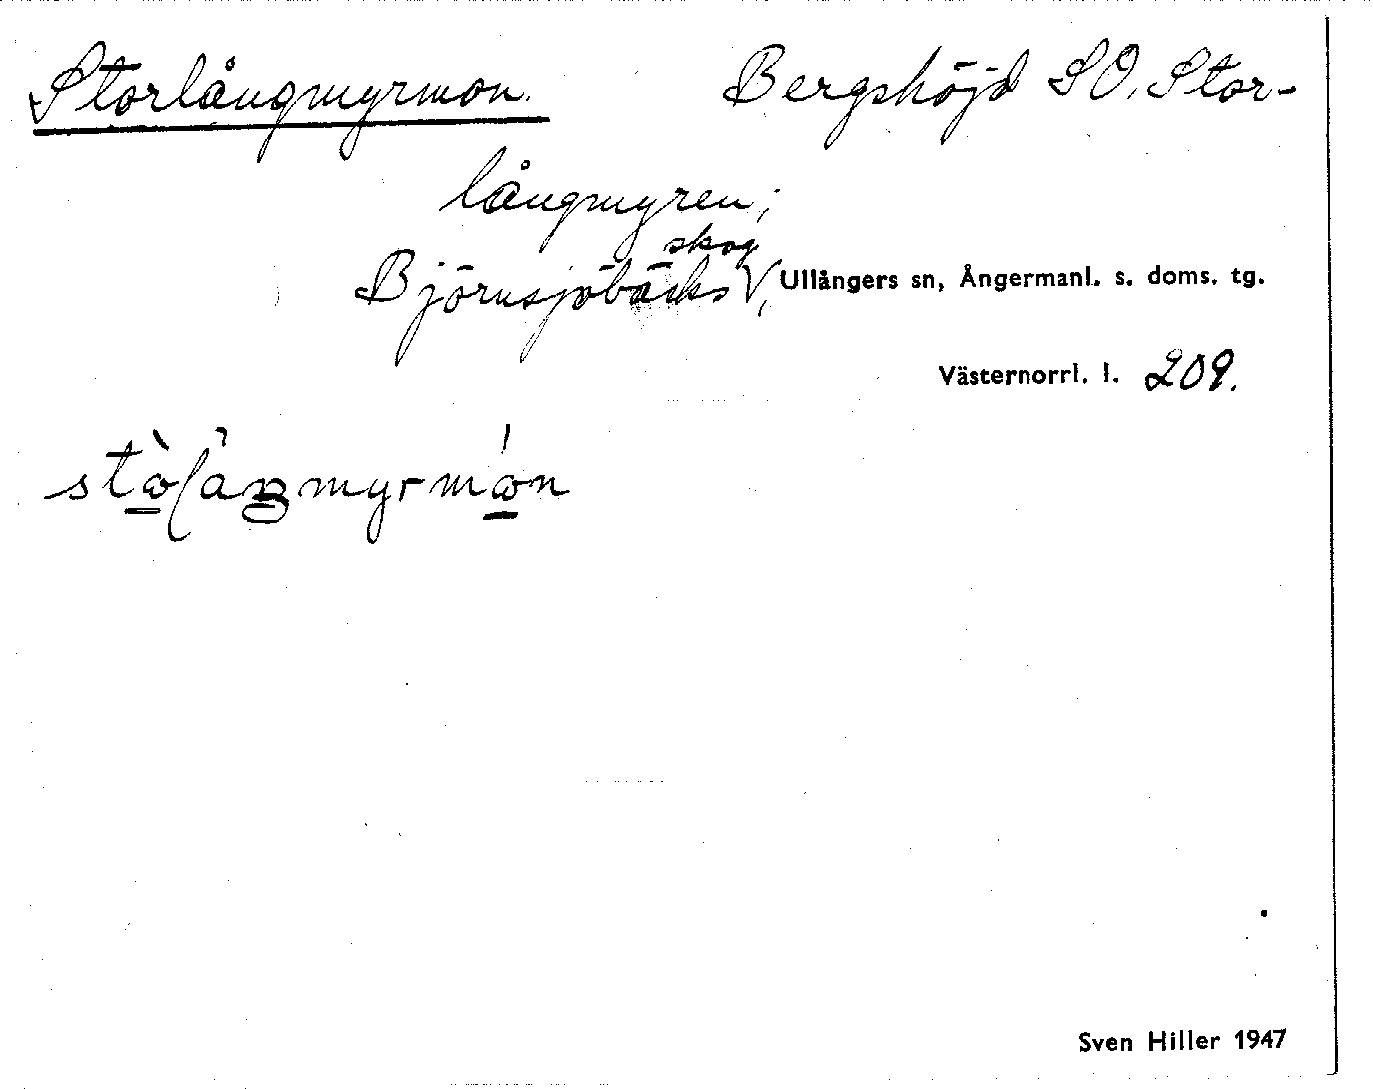 Storlångmyrmon. Bergshöjd SO. Stor-
långmyren;
skog
Björnsjöbäcks V, Ullångers sn, Ångermanl. s. doms. tg.
Västernorrl. l. 209.
Sven Hiller 1947